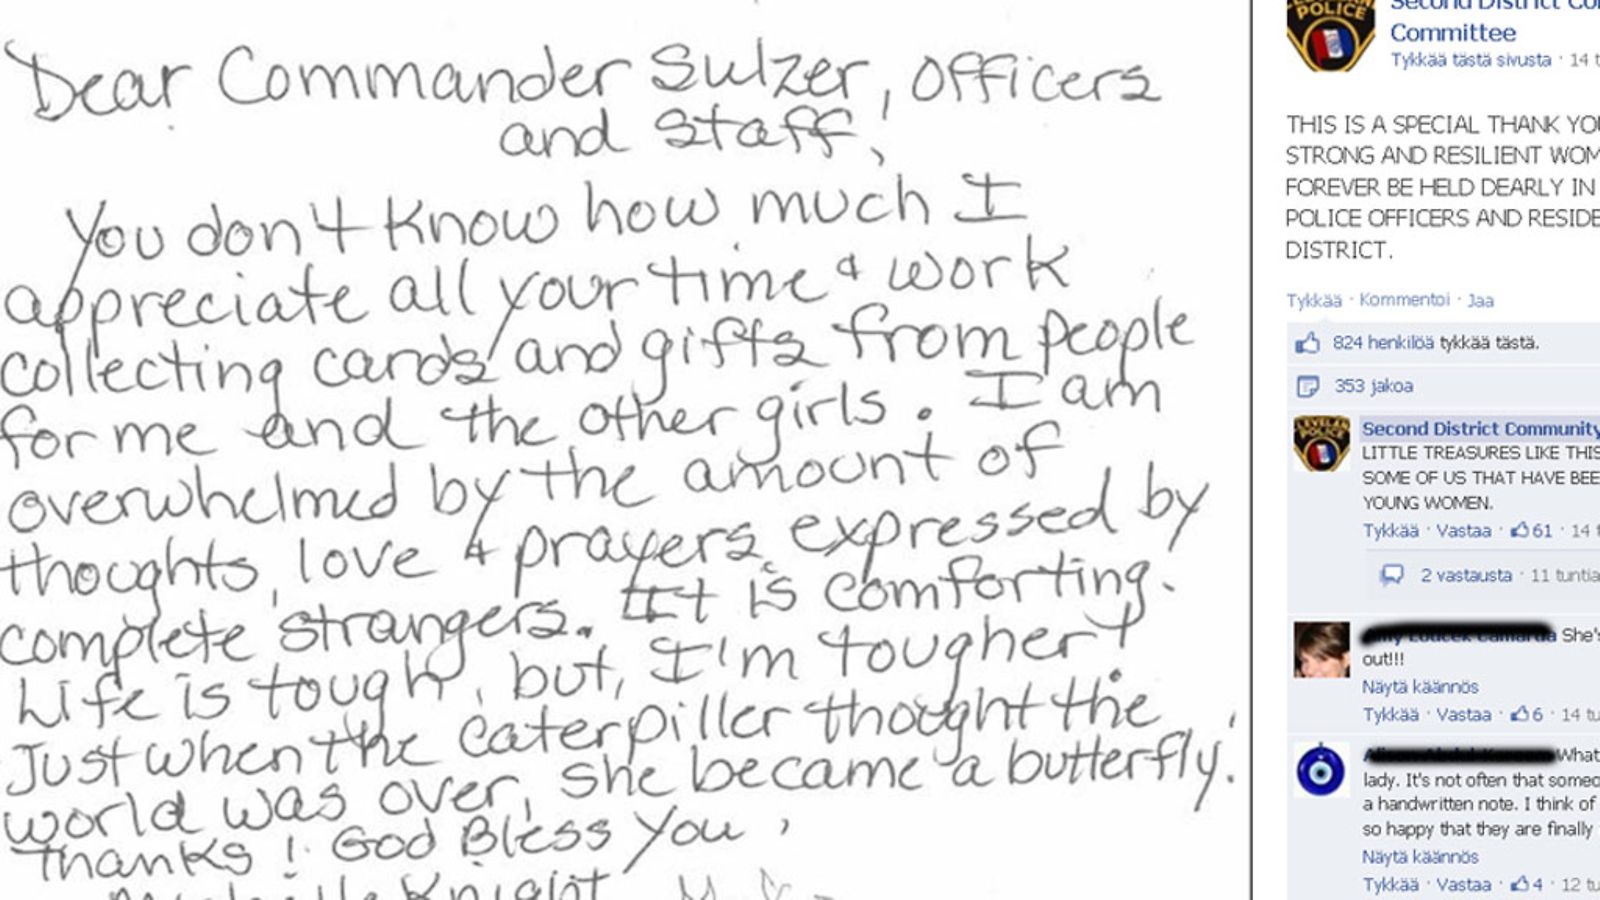 Dear Commander Sulzer, officers
and Staff,
You don't know how much I
appreciate all your time & work
collecting cards and gifts from people
for me and the other girls. I am
overwhelmed by the amount of
thoughts, love & prayers expressed by
complete strangers. It is comforting.
Life is tough, but, I'm tougher!
Just when the caterpiller thought the
world was over, she became a butterfly.
Thanks! God Bless You,
Knight
POLICE
Second District
Committee
Tykkää tästä sivusta · 14
THIS IS A SPECIAL THANK
STRONG AND RESILIENT
FOREVER BE HELD DEARLY IN
POLICE OFFICERS AND
DISTRICT.
Tykkää · Kommentoi · Jaa
824 henkilöä tykkää tästä.
353 jakoa
POLICE
Second District Community
LITTLE TREASURES LIKE
SOME OF US THAT HAVE
YOUNG WOMEN.
Tykkää · Vastaa · 61 · 14
2 vastausta · 11
out!!!
Näytä käännös
Tykkää · Vastaa · 6 · 14
What
lady. It's not often that
a handwritten note. I think of
so happy that they are finally
Näytä käännös
Tykkää · Vastaa · 4 · 12